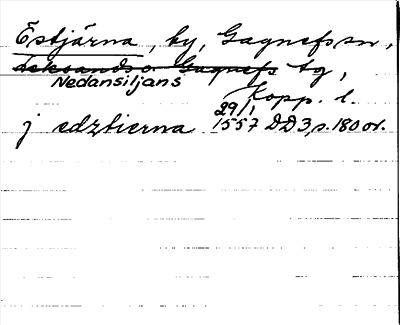 Östjärna, by, Gagnefs sn,
Leksands o. Gagnefs tg,
Nedansiljans
Kopp. l.
j edztierna 29/1 1557 DD3, s. 180 or.